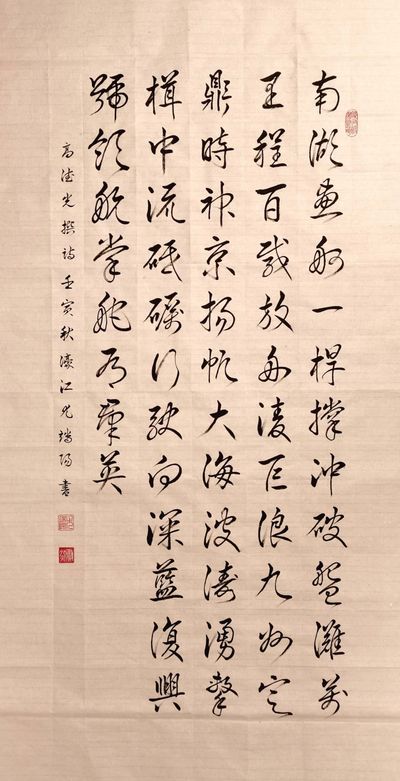 南湖畫船一桿撐冲破灘萬
里程百載放舟凌巨浪九州定
鼎時神京揚帆大海波濤湧擎
楫中流砥礪行駛向深藍復興
號領航掌舵有羣英
高德光撰詩壬寅秋濠江端陽書